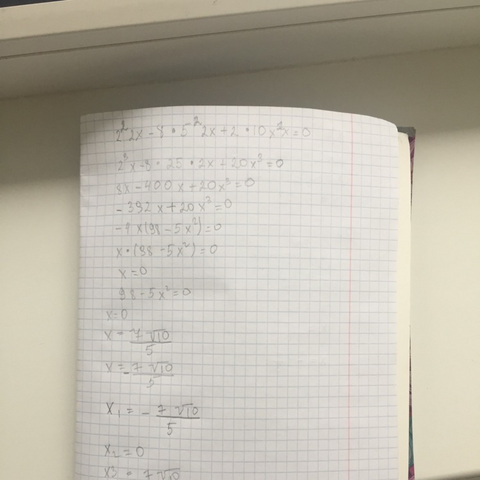 2²2x-8•5²2x+2•10x³=0
2³x-8•25•2x+20x³=0
8x-400x+20x³=0
-392x+20x³=0
-4x(98-5x²)=0
x•(98-5x²)=0
x=0
98-5x²=0
x=0
x=7√10/5
x=-7√10/5
x₁=-7√10/5
x₂=0
x₃=7√10